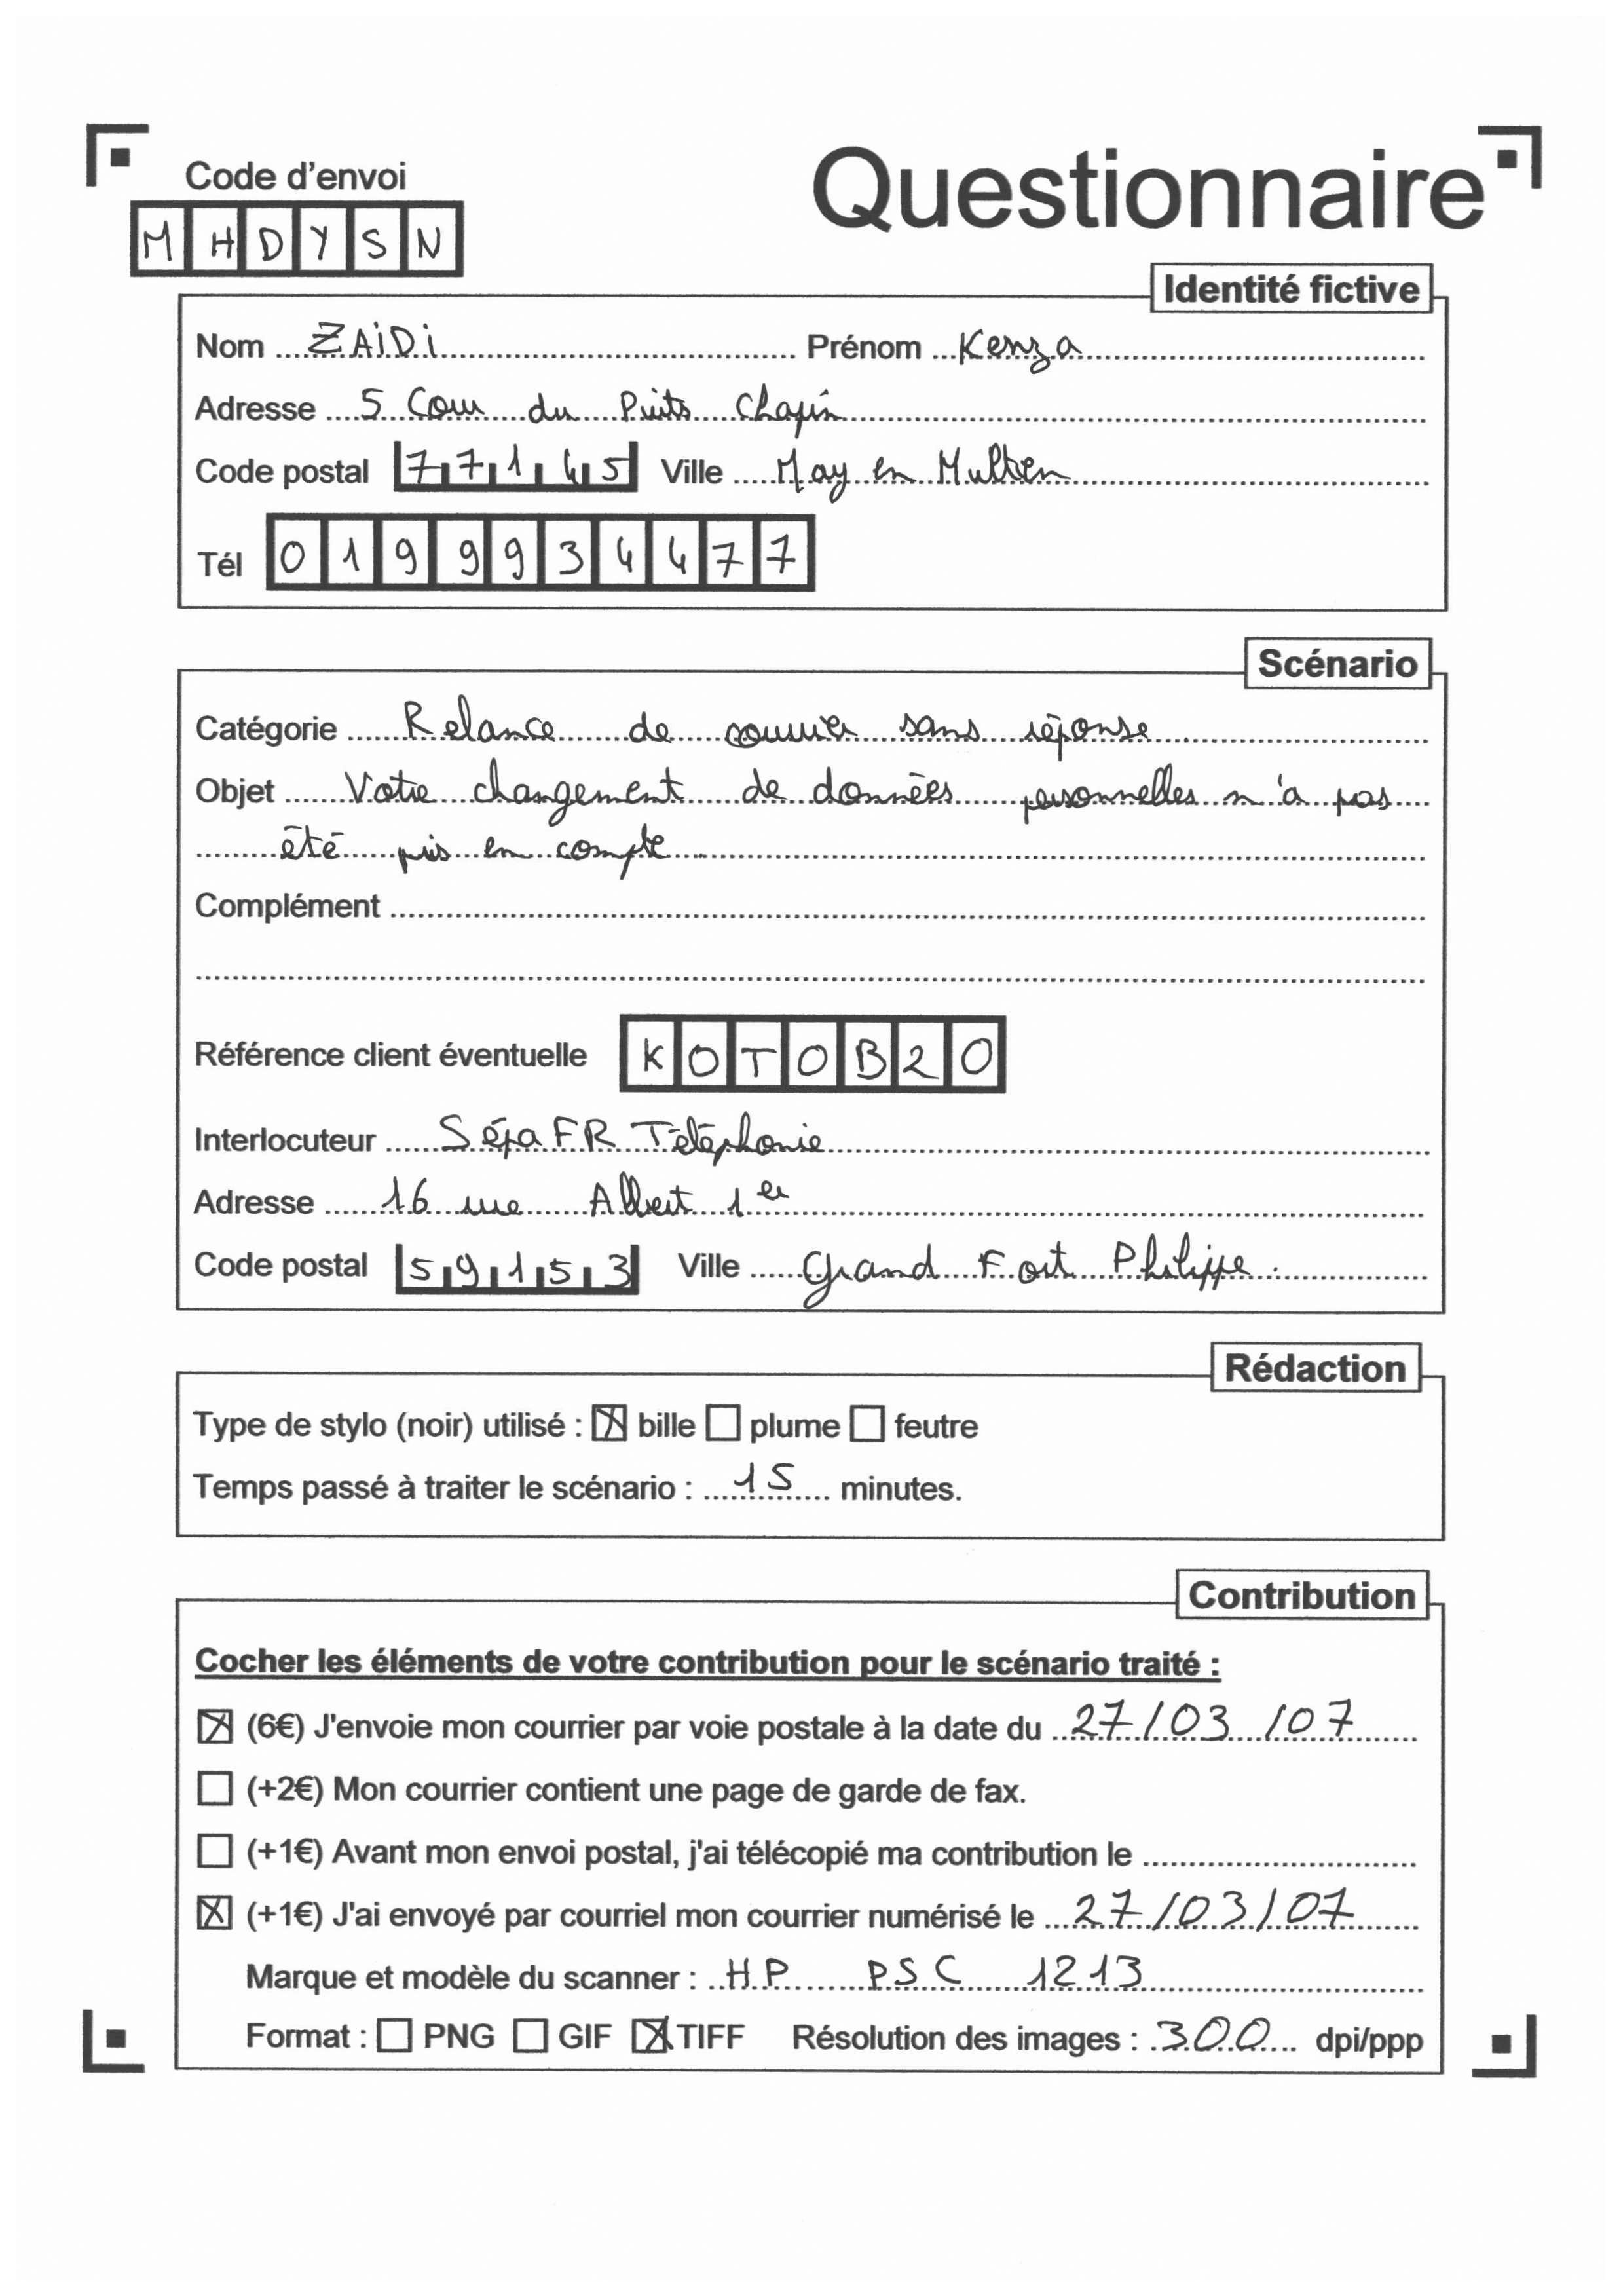 Code d'envoi
Questionnaire
MHDYSN
Identité fictive
Nom ZAiDi Prénom Kenza
Adresse 5 Cour du Puits Chapin
Code postal 77145 Ville May en Multien
Tél 0199934477
Scénario
Catégorie Relance de courrier sans réponse
Objet Votre changement de données personnelles n'a pas
été pris en compte
Complément
Référence client éventuelle KOTOB20
Interlocuteur SépaFR Téléphonie
Adresse 16 rue Albert 1er
Code postal 59153 Ville Grand Fort Philippe.
Rédaction
Type de stylo (noir) utilisé : bille plume feutre
Temps passé à traiter le scénario : 15 minutes.
Contribution
Cocher les éléments de votre contribution pour le scénario traité :
(6€) J'envoie mon courrier par voie postale à la date du 27/03/07
(+2€) Mon courrier contient une page de garde de fax.
(+1€) Avant mon envoi postal, j'ai télécopié ma contribution le
(+1€) J'ai envoyé par courriel mon courrier numérisé le 27/03/07
Marque et modèle du scanner : HP PSC 1213
Format : PNG GIF TIFF Résolution des images : 300 dpi/ppp